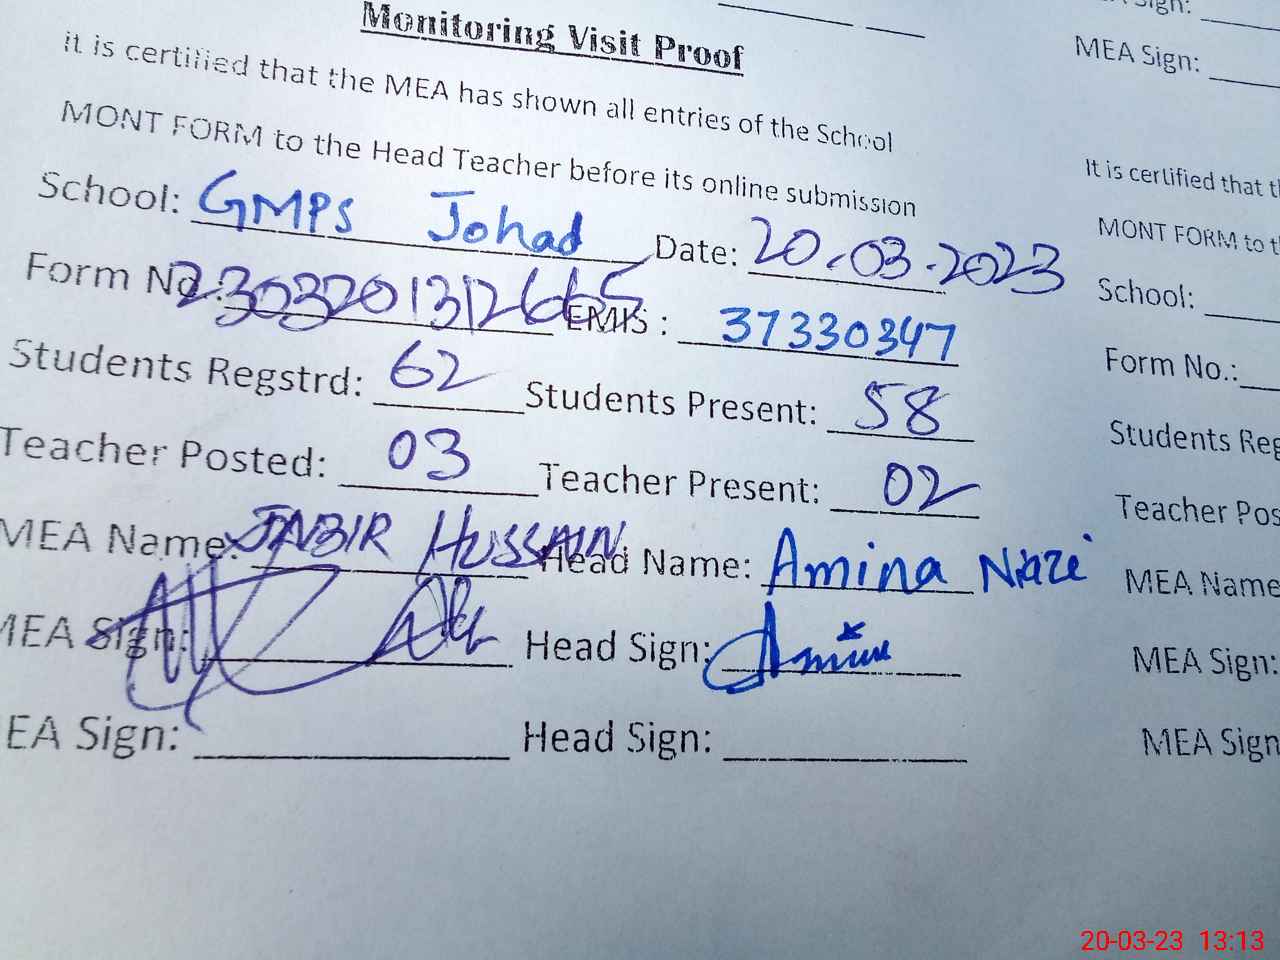 Sign:
MEA Sign:
Monitoring Visit Proof
It is certified that the MEA has shown all entries of the School
MONT FORM to the Head Teacher before its online submission
School: GMPS Johad Date: 20.03.2023
Form No.: 2303201312665 EMIS: 37330347
Students Regstrd: 62 Students Present: 58
Teacher Posted: 03 Teacher Present: 02
MEA Name: JABIR HUSSAIN Head Name: Amina
MEA Sign: Head Sign: Amina
EA Sign: Head Sign:
It is certified that
MONT FORM to
School:
Form No.:
Students Reg
Teacher Pos
MEA Name
MEA Sign:
MEA Sign
20-03-23 13:13